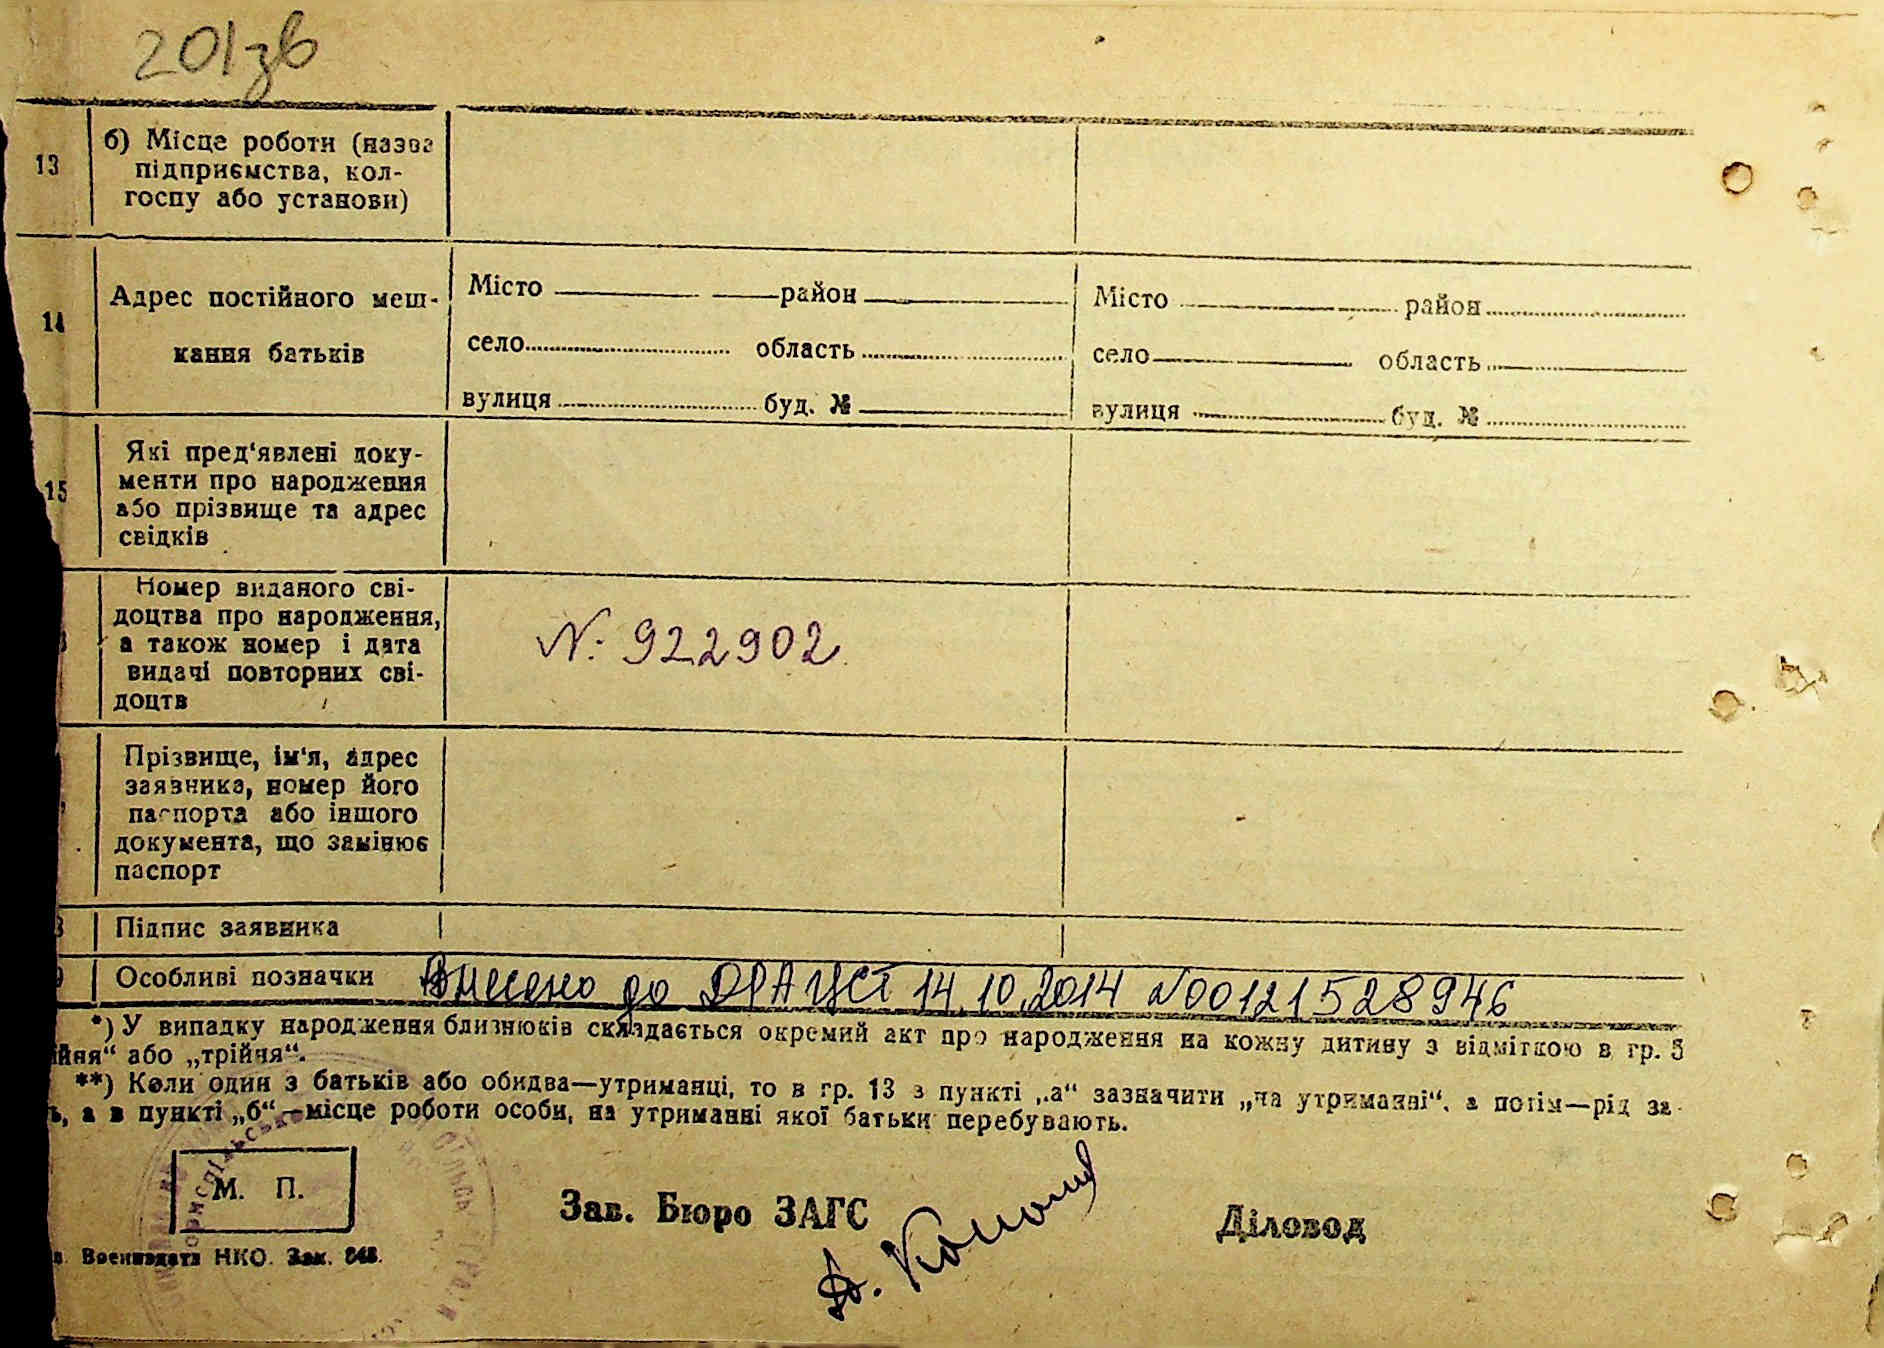 201зв
13
б) Місце роботи (назва
підприємства, кол-
госпу або установи)
14
Адрес постійного меш-
кання батьків
Місто район
село область
вулиця буд. №
Місто район
село область
вулиця буд. №
15
Які пред‘явлені доку-
менти про народження
або прізвище та адрес
свідків
Номер виданого сві-
доцтва про народження,
а також номер і дата
видачі повторних сві-
доцтв
№ 922902
Прізвище, ім‘я, адрес
заявника, номер його
паспорта або іншого
документа, що замінює
паспорт
Підпис заявника
Особливі позначки
Внесено до ДРАЦСГ 14.10.2014 №00121528946
*) У випадку народження близнюків складається окремий акт про народження на кожну дитину з відміткою в гр. 5
йня“ або „трійня“.
**) Коли один з батьків або обидва—утриманці, то в гр. 13 з пункті „а“ зазначити „на утриманні“, а потім—рід за-
ь, а в пункті „б“—місце роботи особи, на утриманні якої батьки перебувають.
М. П.
Зав. Бюро ЗАГС
Діловод
Воениздата НКО. Зак. 848.